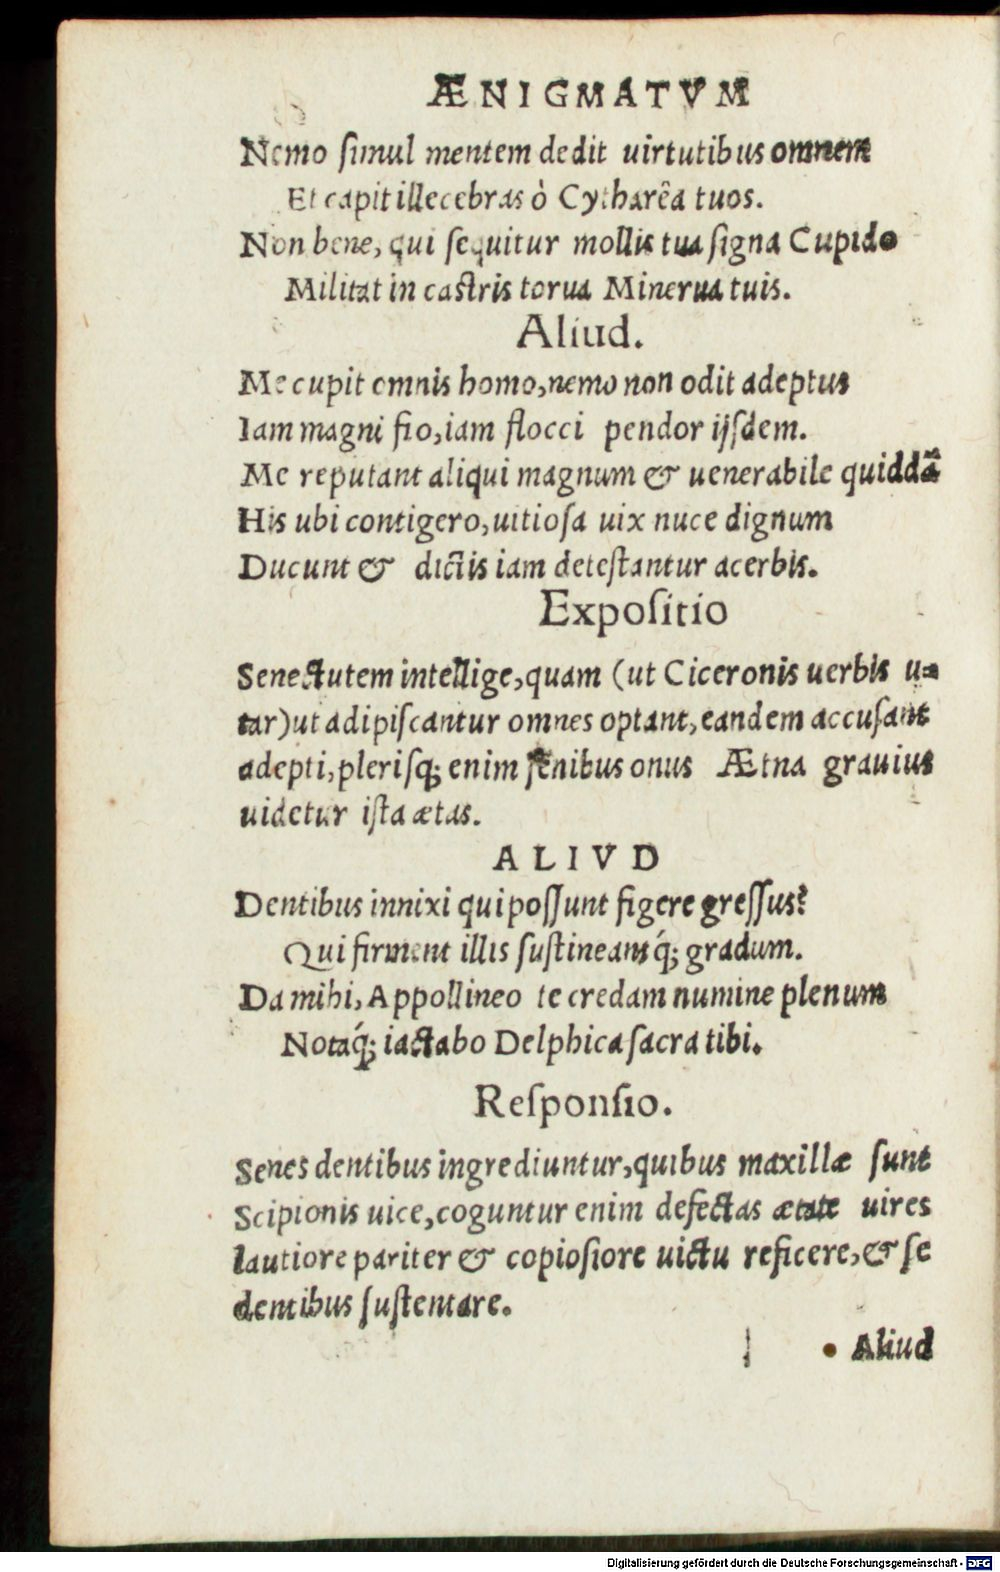 ÆNIGMATVM
Nemo ſimul mentem dedit uirtutibus omnem
Et capit illecebras ò Cytharêa tuos.
Non bene, qui ſequitur mollis tua ſigna Cupido
Militat in caſtris torua Minerua tuis.
Aliud.
Me cupit omnis homo, nemo non odit adeptus
Iam magni fio, iam flocci pendor ijſdem.
Me reputant aliqui magnum & uenerabile quiddã
His ubi contigero, uitioſa uix nuce dignum
Ducunt & dictis iam deteſtantur acerbis.
Expoſitio
Senectutem intellige, quam (ut Ciceronis uerbis u=
tar) ut adipiſcantur omnes optant, eandem accuſant
adepti, pleriſq; enim ſenibus onus Ætna grauius
uidetur iſta ætas.
ALIVD
Dentibus innixi qui poſſunt figere greſſus?
Qui firment illis ſuſtineantq́; gradum.
Da mihi, Appollineo te credam numine plenum
Notaq́; iactabo Delphica ſacra tibi.
Reſponſio.
Senes dentibus ingrediuntur, quibus maxillæ ſunt
Scipionis uice, coguntur enim defectas ætate uires
lautiore pariter & copioſiore uictu reficere, & ſe
dentibus ſuſtentare.
Aliud
Digitalisierung gefördert durch die Deutsche Forschungsgemeinschaft - DFG